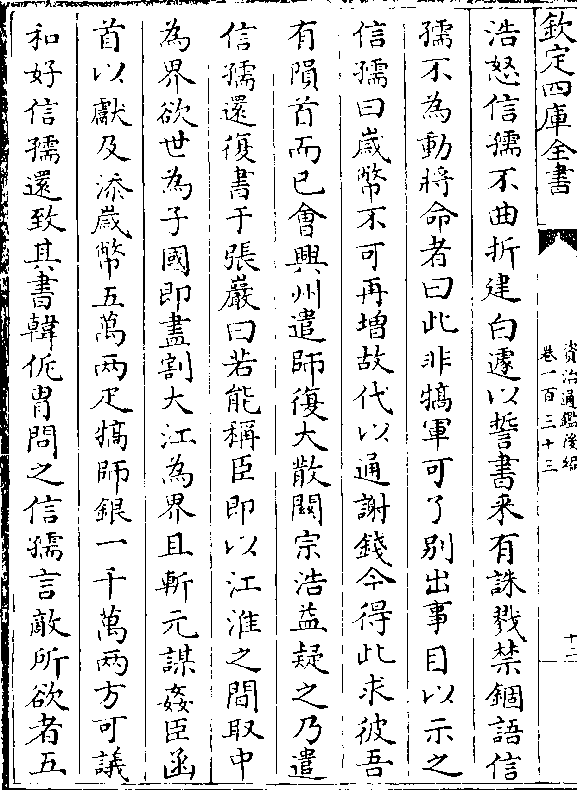 欽定四庫全書
資治通鑑後編
卷一百三十三
十二
浩怒信孺不曲折建白遽以誓書来有誅戮禁錮語信
孺不為動將命者曰此非犒軍可了别出事目以示之
信孺曰嵗幣不可再增故代以通謝錢今得此求彼吾
有隕首而已會興州遣師復大散闗宗浩益疑之乃遣
信孺還復書于張巖曰若能稱臣即以江淮之間取中
為界欲世為子國即盡割大江為界且斬元謀姦臣函
首以獻及添嵗幣五萬两疋犒師銀一千萬两方可議
和好信孺還致其書韓侂胄問之信孺言敵所欲者五